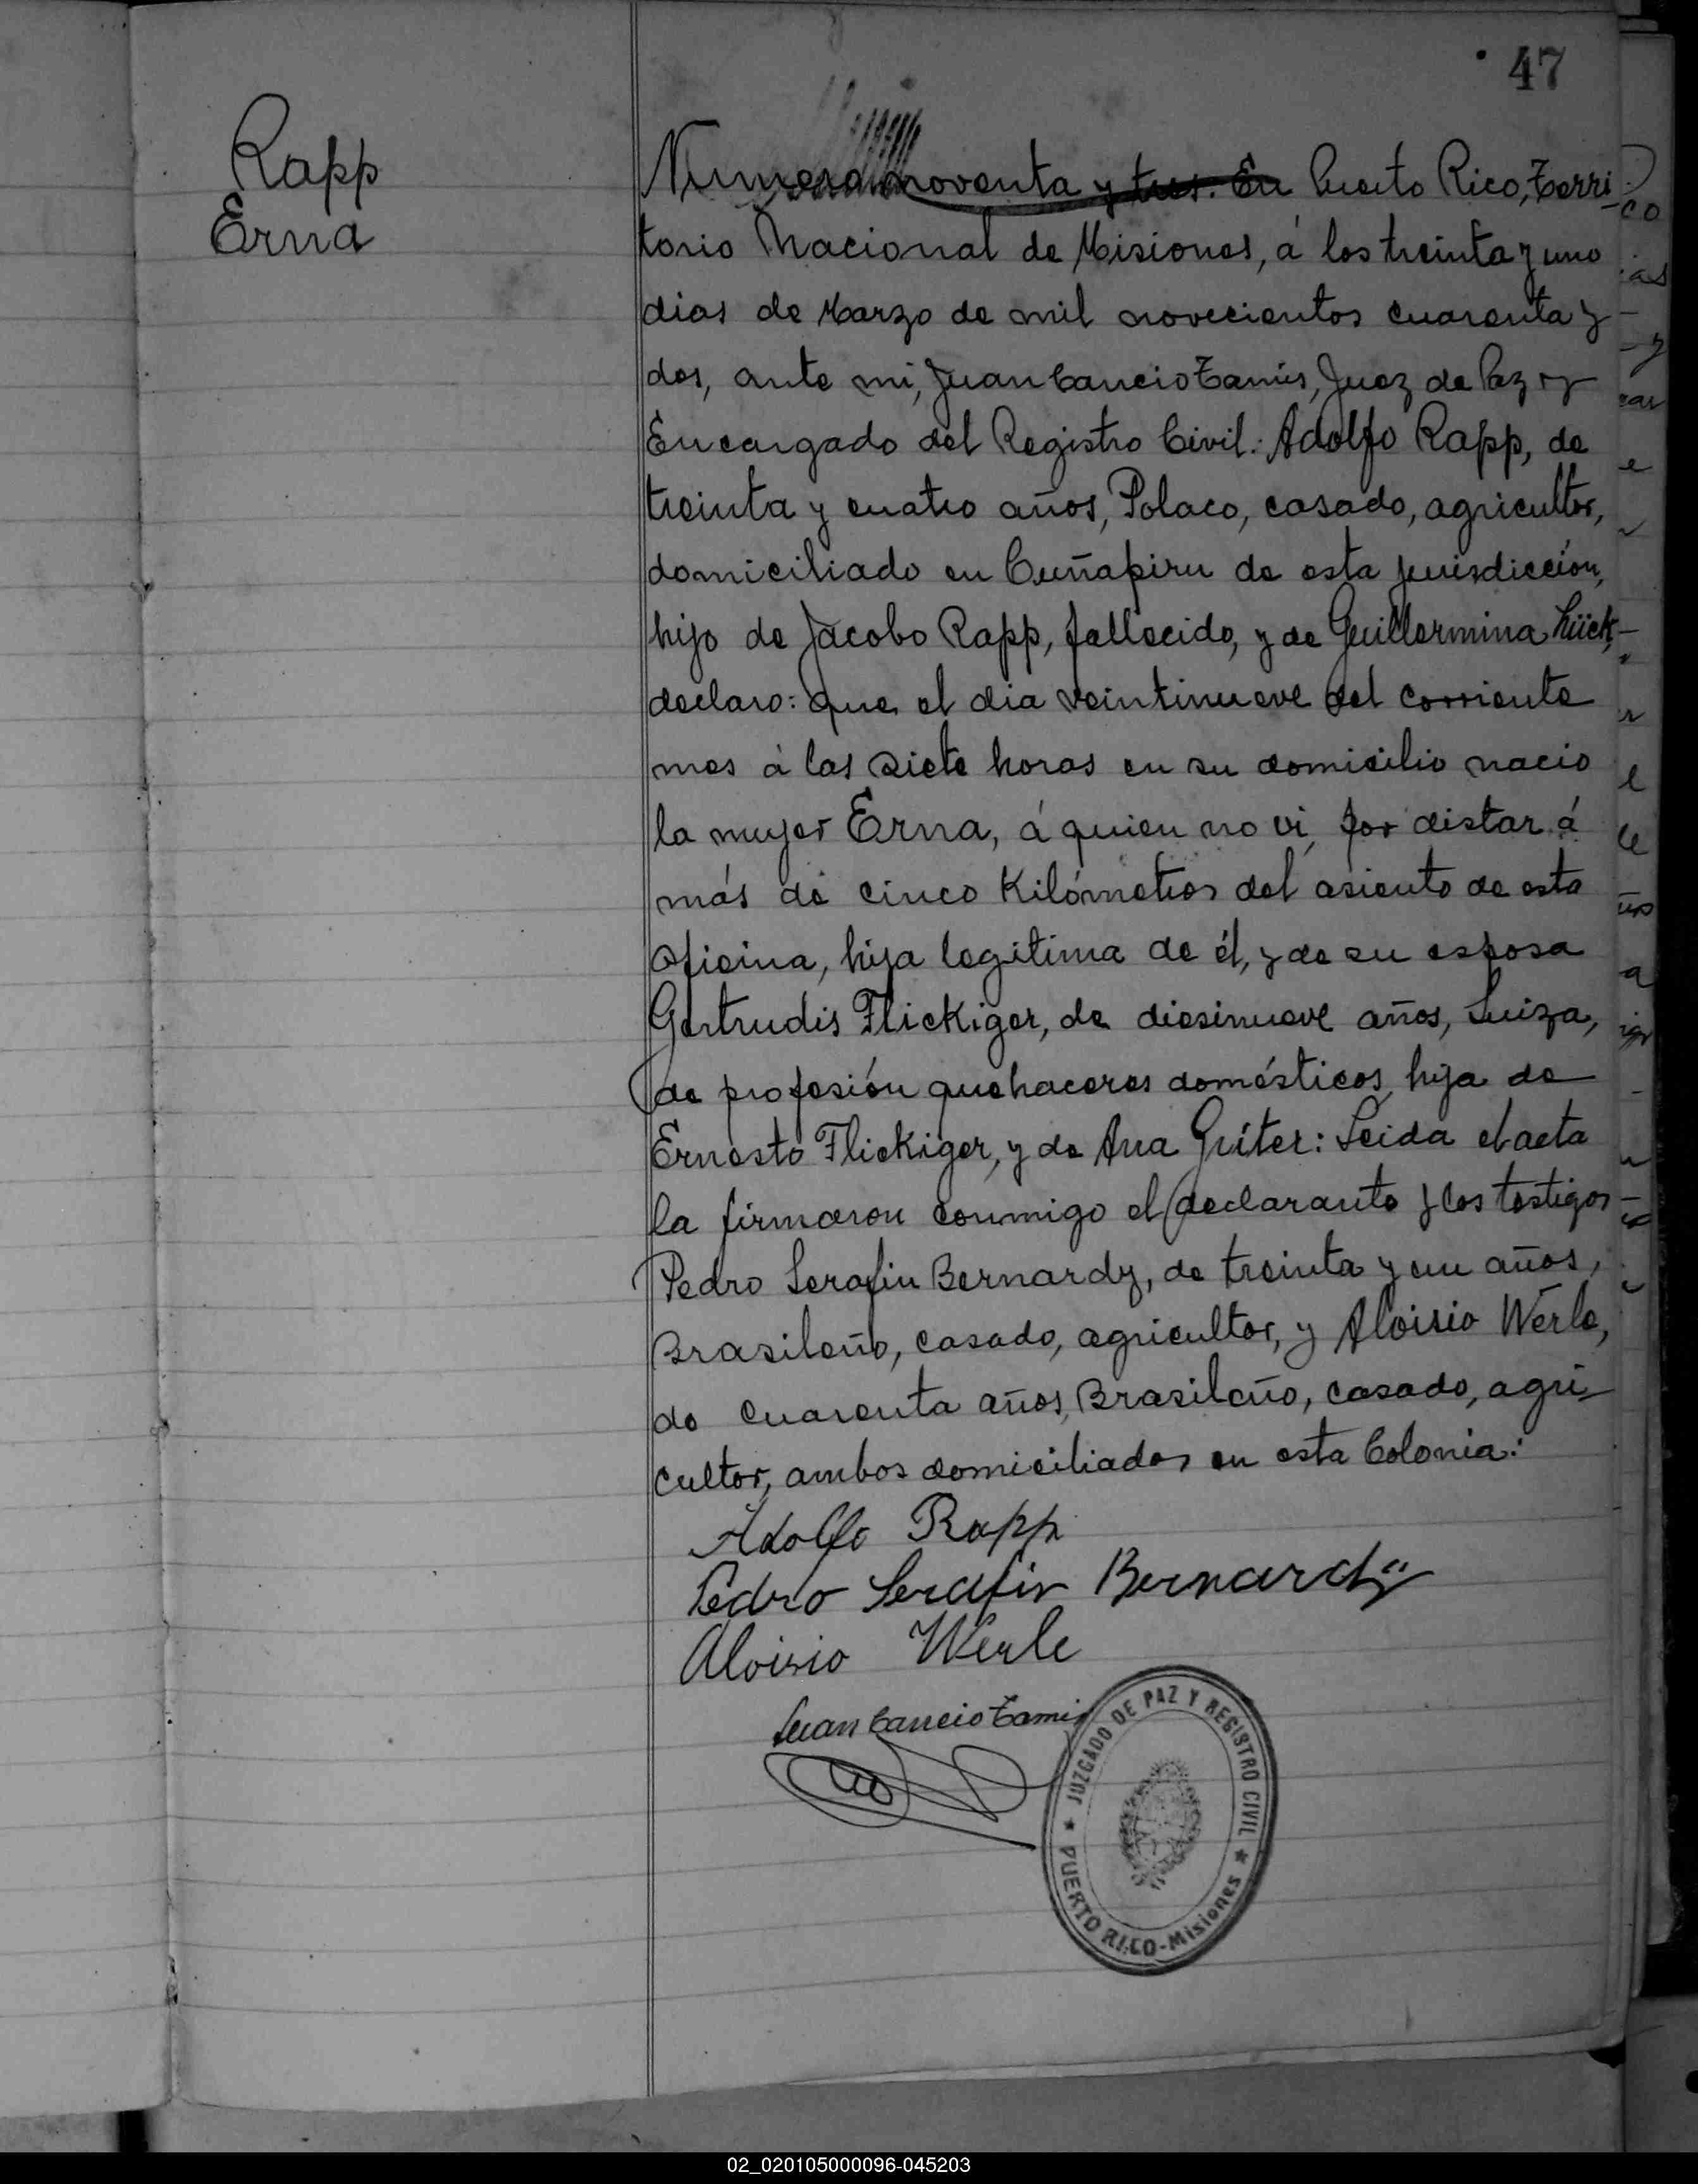 47
Rapp
Erna
Numero noventa y tres. En Puerto Rico, Terri-
torio Nacional de Misiones, á los treinta y uno
dias de Marzo de mil novecientos cuarenta y
dos, ante mi, Juan Cancio Tamis, Juez de Paz y
Encargado del Registro Civil: Adolfo Rapp, de
treinta y cuatro años, Polaco, casado, agricultor,
domiciliado en Cuñapiru de esta jurisdicción,
hijo de Jacobo Rapp, fallecido, y de Guillermina Lück,
declaro: que el dia veintinueve del corriente
mes á las siete horas en su domicilio nacio
la mujer Erna, á quien no vi, por distar á
más de cinco Kilómetros del asiento de esta
oficina, hija legitima de él, y de su esposa
Gertrudis Flickiger, de diesinueve años, Suiza,
de profesión quehaceres domésticos, hija de
Ernesto Flickiger, y de Ana Grüter: Leida el acta
la firmaron conmigo el declarante y los testigos
Pedro Serafin Bernardy, de treinta y un años,
Brasileño, casado, agricultor, y Aloisio Werle,
de cuarenta años, Brasileño, casado, agri-
cultor, ambos domiciliados en esta Colonia:
Adolfo Rapp
Pedro Serafin Bernardy
Aloisio Werle
Juan Cancio Tamis
JUZGADO DE PAZ Y REGISTRO CIVIL
PUERTO RICO-Misiones
02_020105000096-045203